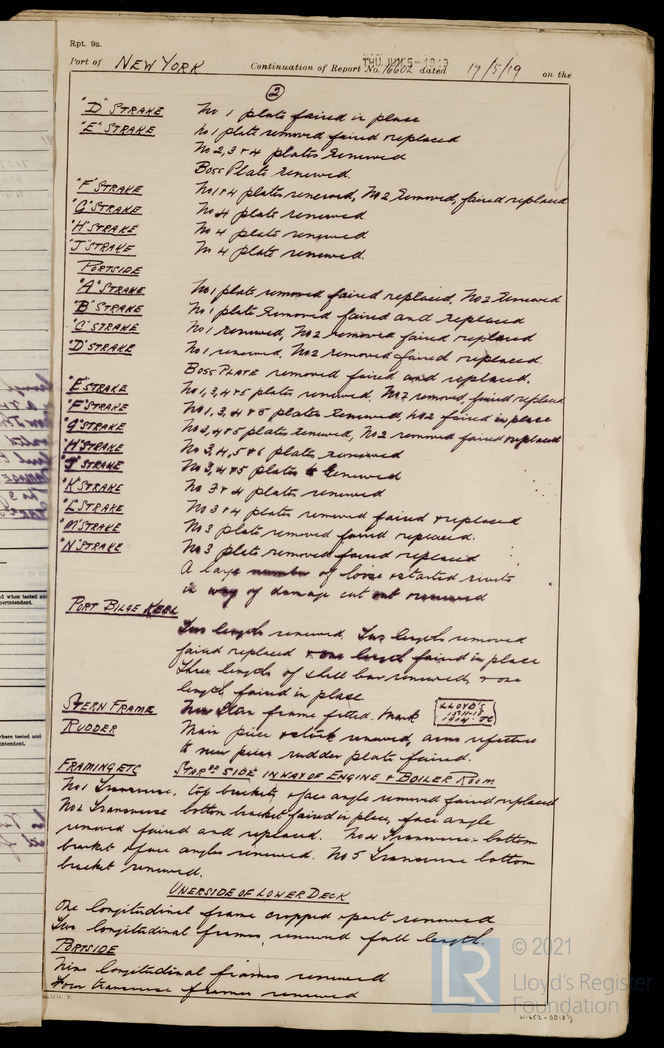 Rpt. 9a.
Port of NEW YORK Continuation of Report No. 16602 dated 17/5/19 on the
THU. JUN. 5-1919
2
"D" STRAKE No 1 plate faired in place
"E" STRAKE No 1 plate removed faired replaced
No 2, 3 & 4 plates renewed
Boss Plate renewed.
"F" STRAKE No 1 & 4 plates renewed, No 2 removed, faired replaced
"G" STRAKE No 4 plate renewed
"H" STRAKE No 4 plate renewed
"J" STRAKE No 4 plate renewed.
PORTSIDE
"A" STRAKE No 1 plate removed faired replaced, No 2 Renewed
"B" STRAKE No 1 plate removed faired and replaced
"C" STRAKE No 1 renewed, No 2 removed faired replaced
"D" STRAKE No 1 renewed, No 2 removed faired replaced.
BOSS PLATE removed faired and replaced.
"E" STRAKE No 1, 3, 4 & 5 plates renewed, No 2 removed, faired replaced
"F" STRAKE No 1, 3, 4 & 5 plates renewed, No 2 faired in place
"G" STRAKE No 3, 4 & 5 plates renewed, No 2 removed faired replaced
"H" STRAKE No 3, 4, 5 & 6 plates renewed
"J" STRAKE No 3, 4 & 5 plates renewed
"K" STRAKE No 3 & 4 plates renewed
"L" STRAKE No 3 & 4 plates removed faired & replaced
"M" STRAKE No 3 plate removed faired replaced.
"N" STRAKE No 3 plate removed faired replaced
A large number of loose & started rivets
in way of damage cut out & renewed
PORT BILGE KEEL
Two lengths renewed, Two lengths removed
faired replaced & one length faired in place
Three lengths of shell bar renewed & one
length faired in place
STERN FRAME New Stern frame fitted. Mark LLOYD'S
RUDDER Main piece & stock renewed, arms refitted
to new piece rudder plate faired.
FRAMING ETC STARBD SIDE IN WAY OF ENGINE & BOILER ROOM
No 1 Transverse, top bracket & face angle removed faired replaced
No 2 Transverse bottom bracket faired in place, face angle
removed faired and replaced. No 4 Transverse bottom
bracket & face angles renewed. No 5 Transverse bottom
bracket renewed.
UNERSIDE OF LOWER DECK
One longitudinal frame cropped & part renewed
Two longitudinal frames, renewed full length.
PORTSIDE
Nine longitudinal frames renewed
Four transverse frames renewed
© 2021
Lloyd's Register
Foundation
LR
W1652-0018½